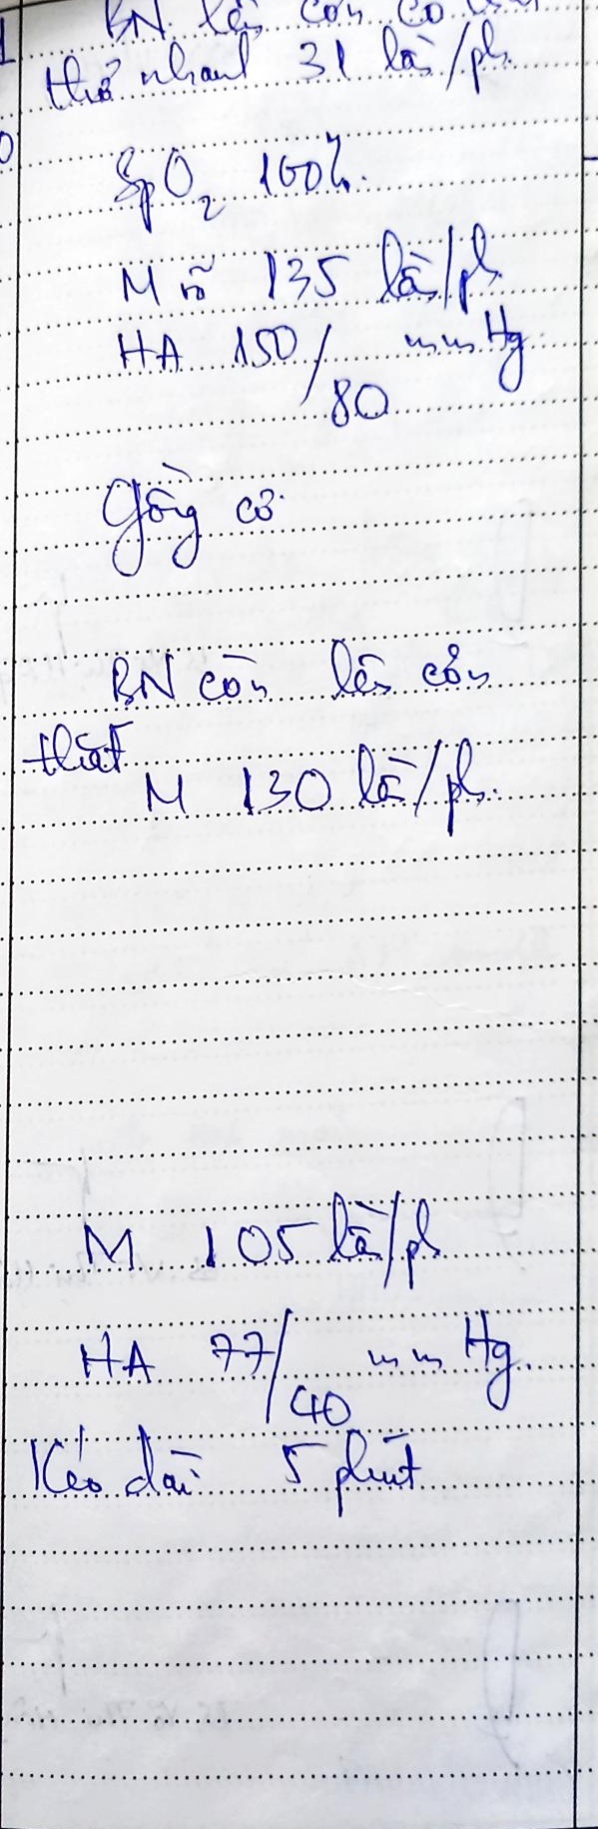 BN lên cơn co
thở nhanh 31 lần/ph
SpO₂ 100%.
M rõ 135 lần/ph
HA 150/80 mmHg
Gồng cơ
BN còn lên cơn
thắt
M 130 lần/ph.
M 105 lần/ph
HA 77/40 mmHg.
Kéo dài 5 phút